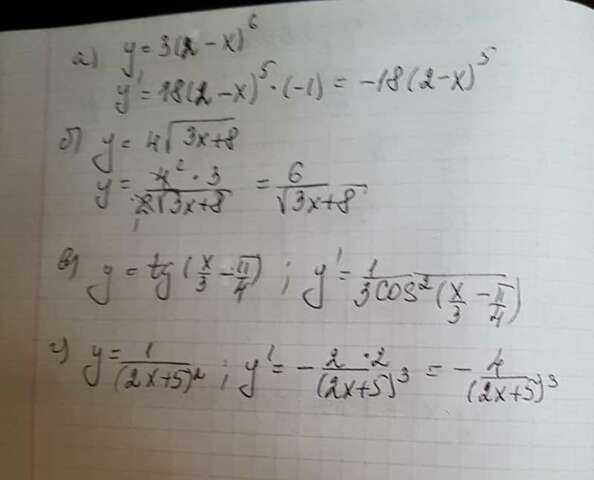 а) y = 3(2 - x)^6
y' = 18(2 - x)^5 · (-1) = -18(2 - x)^5
б) y = 4√(3x+8)
y = 4^2 · 3 / 2√(3x+8) = 6 / √(3x+8)
в) y = tg(x/3 - π/4) ; y' = 1 / 3cos^2(x/3 - π/4)
г) y = 1 / (2x+5)^2 ; y' = - 2 · 2 / (2x+5)^3 = - 4 / (2x+5)^3